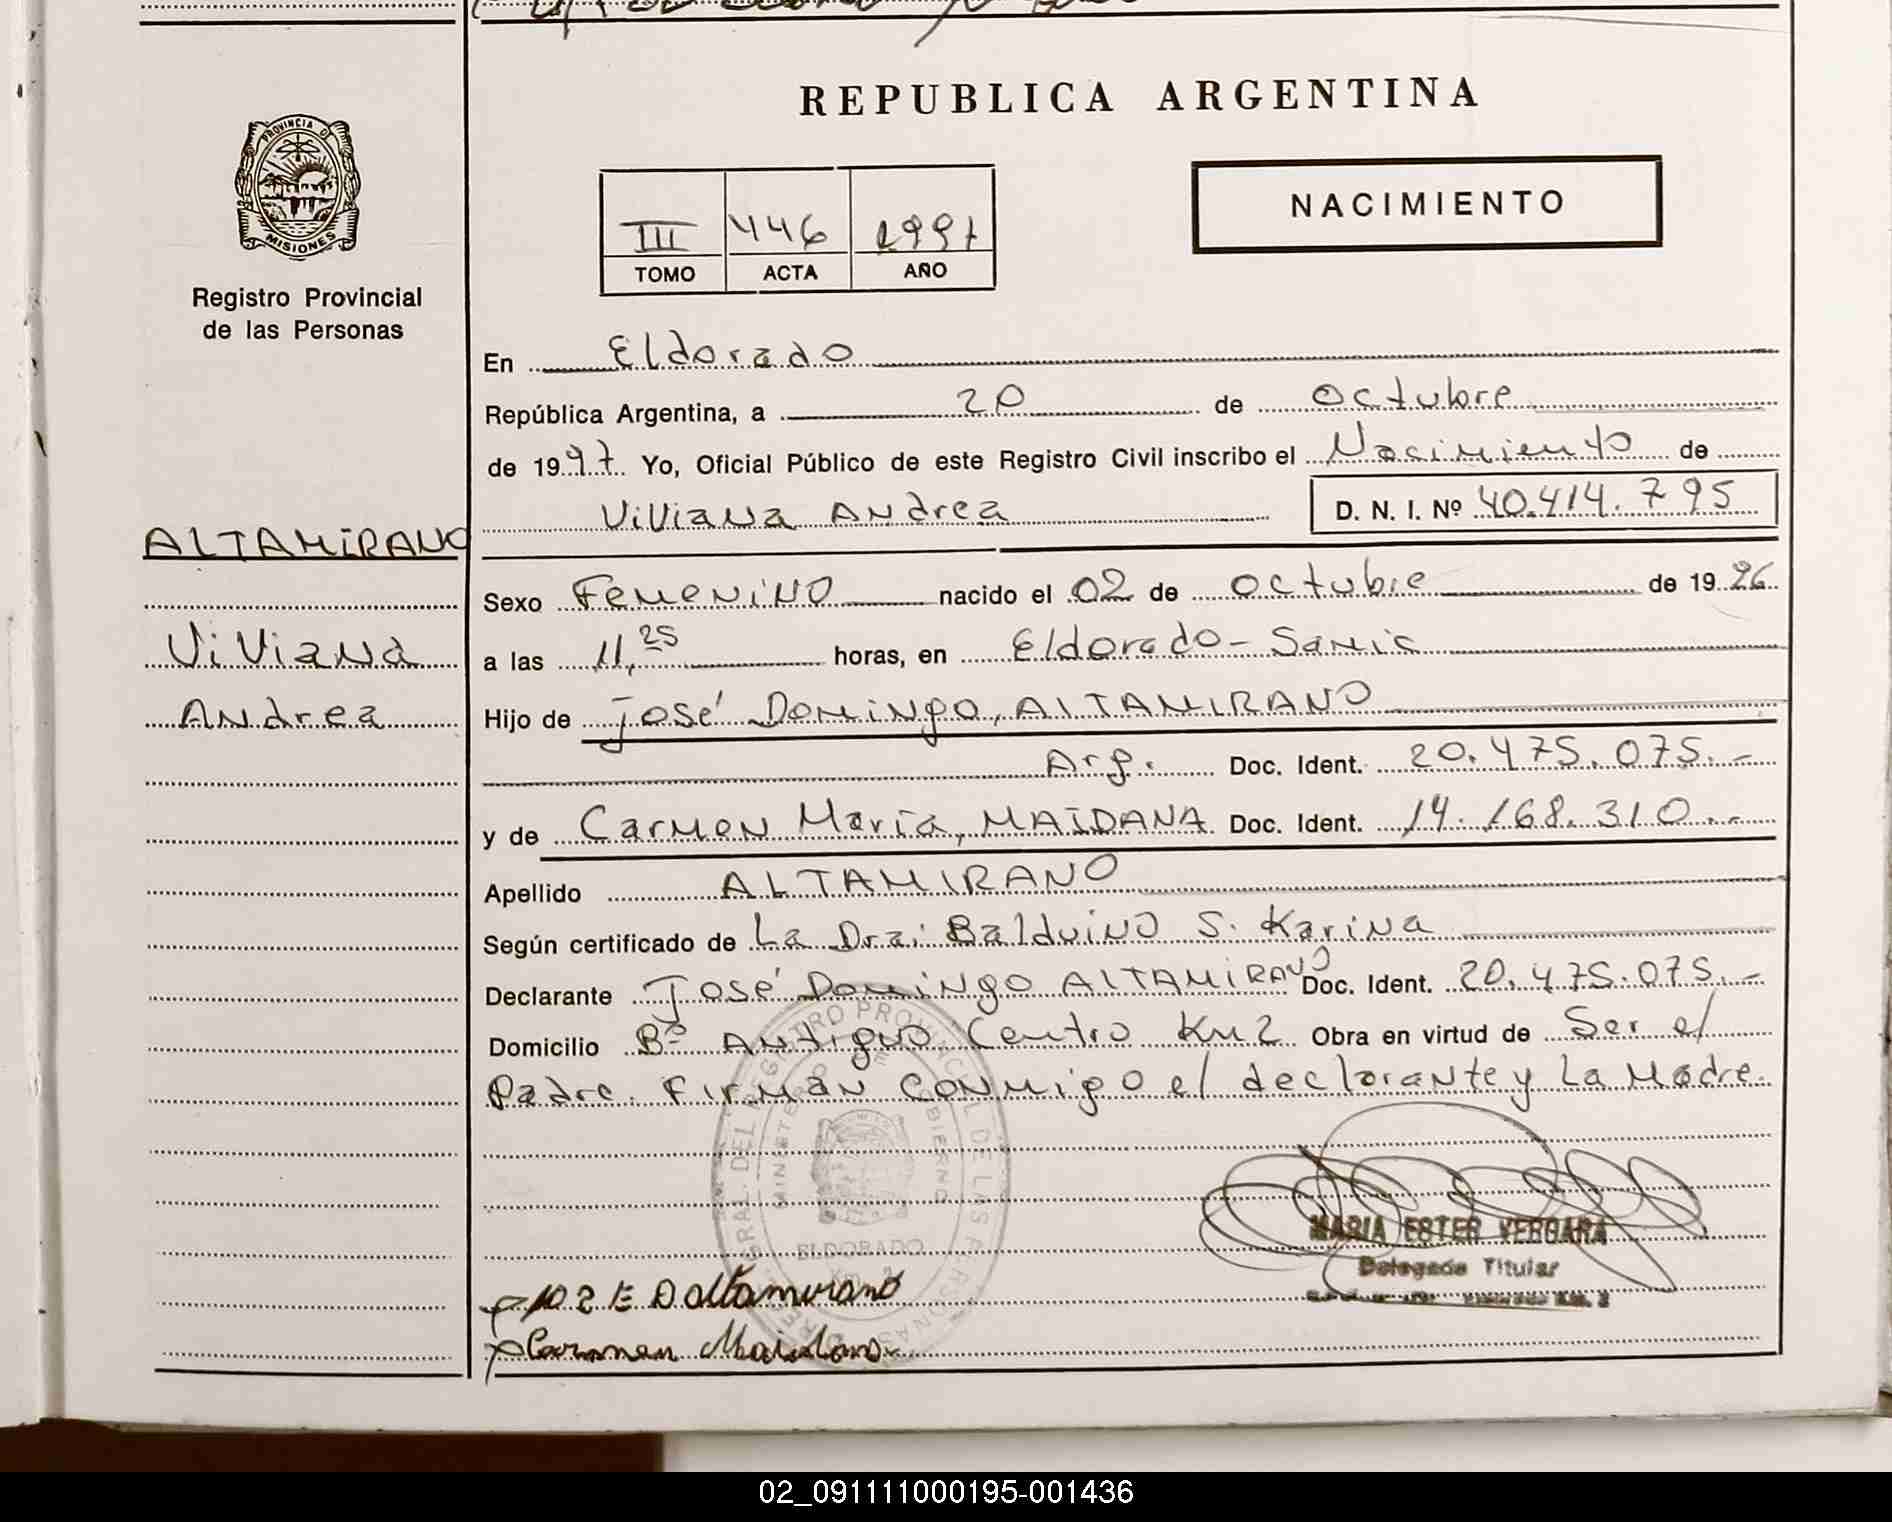 REPUBLICA ARGENTINA
PROVINCIA D
MISIONES
Registro Provincial
de las Personas
III 446 1997
TOMO ACTA AÑO
NACIMIENTO
En Eldorado
República Argentina, a 20 de Octubre
de 1997. Yo, Oficial Público de este Registro Civil inscribo el Nacimiento de
Viviana Andrea D. N. I. Nº 40.414.795
ALTAMIRANO
Viviana
Andrea
Sexo Femenino nacido el 02 de Octubre de 19
a las 11,25 horas, en Eldorado - Samic
Hijo de José Domingo, ALTAMIRANO
Arg. Doc. Ident. 20.475.075.-
y de Carmen María, MAIDANA Doc. Ident. 14.168.310.-
Apellido ALTAMIRANO
Según certificado de La Dra: Balduino S. Karina
Declarante José Domingo ALTAMIRANO Doc. Ident. 20.475.075.-
Domicilio Bº Antiguo Centro Km2 Obra en virtud de Ser el
Padre. Firman conmigo el declarante y La Madre.
ELDORADO
MARIA ESTER VERGARA
Delegada Titular
D altamirano
Carmen Maidana
02_091111000195-001436